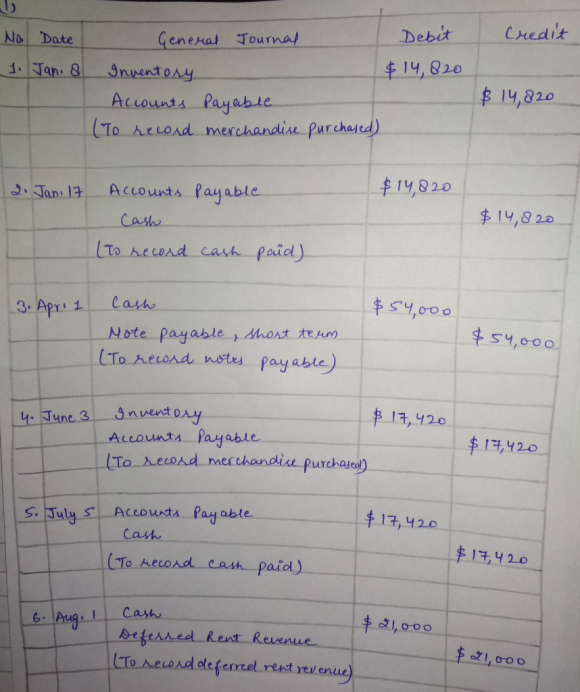 1)
No Date General Journal Debit Credit
1. Jan. 8 Inventory $ 14,820
Accounts Payable $ 14,820
(To record merchandise purchased)
2. Jan. 17 Accounts Payable $ 14,820
Cash $ 14,820
(To record cash paid)
3. Apr. 1 Cash $ 54,000
Note payable, short term $ 54,000
(To record notes payable)
4. June 3 Inventory $ 17,420
Accounts Payable $ 17,420
(To record merchandise purchased)
5. July 5 Accounts Payable $ 17,420
Cash $ 17,420
(To record cash paid)
6. Aug. 1 Cash $ 21,000
Deferred Rent Revenue $ 21,000
(To record deferred rent revenue)